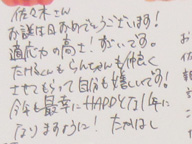 佐々木さん
お誕生日おめでとうございます!
適応力の高さ!すごいです。
たけるくんもらんちゃんも仲良く
させてもらって自分も嬉しいです。
今年も最幸にHAPPYな1年に
なりますように!